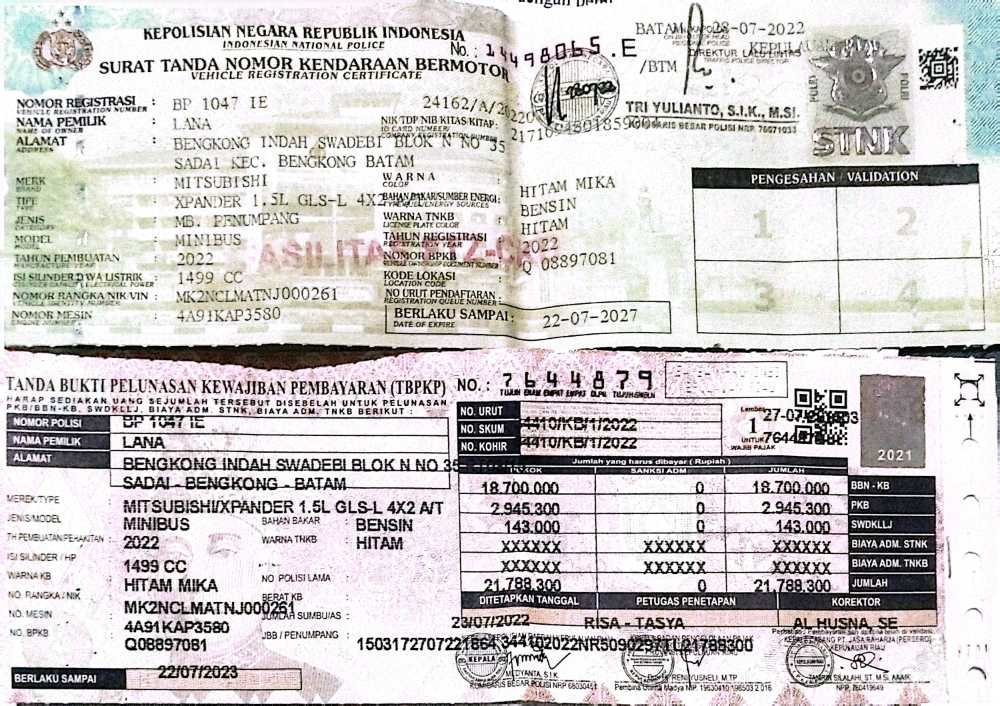 KEPOLISIAN NEGARA REPUBLIK INDONESIA
INDONESIAN NATIONAL POLICE
No. : 14498065 .E
SURAT TANDA NOMOR KENDARAAN BERMOTOR
VEHICLE REGISTRATION CERTIFICATE
BATAM 28-07-2022
/BTM
DIREKTUR
TRI YULIANTO, S.I.K., M.SI
KOMISARIS BESAR POLISI NRP 76071033
POLRI POLRI
STNK
NOMOR REGISTRASI : BP 1047 IE 24162/A/
VEHICLE REGISTRATION NUMBER
NAMA PEMILIK : LANA NIK/TDP NIB KITAS/KITAP :
NAME OF OWNER
ID CARD NUMBER/
COMPANY REGISTRATION NUMBER
ALAMAT : BENGKONG INDAH SWADEBI BLOK N NO 35
ADDRESS
SADAI KEC. BENGKONG BATAM
MERK : MITSUBISHI
BRAND
WARNA : HITAM MIKA
COLOR
TIPE : XPANDER 1.5L GLS-L 4X2
TYPE
BAHAN BAKAR/SUMBER ENERGI : BENSIN
JENIS : MB. PENUMPANG
CATEGORY
WARNA TNKB : HITAM
LICENSE PLATE COLOR
MODEL : MINIBUS
MODEL
TAHUN REGISTRASI : 2022
REGISTRATION YEAR
TAHUN PEMBUATAN : 2022
MANUFACTURE YEAR
NOMOR BPKB : Q 08897081
ISI SILINDER/DAYA LISTRIK : 1499 CC
KODE LOKASI :
LOCATION CODE
NOMOR RANGKA/NIK/VIN : MK2NCLMATNJ000261
VEHICLE IDENTITY NUMBER
NO URUT PENDAFTARAN :
REGISTRATION QUEUE NUMBER
NOMOR MESIN : 4A91KAP3580
ENGINE NUMBER
BERLAKU SAMPAI : 22-07-2027
DATE OF EXPIRE
PENGESAHAN / VALIDATION
1 2
3
TANDA BUKTI PELUNASAN KEWAJIBAN PEMBAYARAN (TBPKP) NO. : 7644879
TUJUH ENAM EMPAT EMPAT DLPN TUJUH SMBLN
HARAP SEDIAKAN UANG SEJUMLAH TERSEBUT DISEBELAH UNTUK PELUNASAN
PKB/BBN-KB, SWDKLLJ, BIAYA ADM. STNK, BIAYA ADM. TNKB BERIKUT :
NOMOR POLISI BP 1047 IE
NAMA PEMILIK LANA
ALAMAT BENGKONG INDAH SWADEBI BLOK N NO 35
SADAI - BENGKONG - BATAM
NO. URUT
NO. SKUM 44410/KB/1/2022
NO. KOHIR 44410/KB/1/2022
Lembar
1
UNTUK
WAJIB PAJAK
2021
MEREK/TYPE : MITSUBISHI/XPANDER 1.5L GLS-L 4X2 A/T
JENIS/MODEL MINIBUS
BAHAN BAKAR : BENSIN
TH PEMBUATAN/PERAKITAN : 2022
WARNA TNKB : HITAM
ISI SILINDER / HP 1499 CC
WARNA KB HITAM MIKA
NO POLISI LAMA :
NO. RANGKA / NIK MK2NCLMATNJ000261
BERAT KB
NO. MESIN 4A91KAP3580
JUMLAH SUMBU/AS :
NO. BPKB Q08897081
JBB / PENUMPANG :
BERLAKU SAMPAI 22/07/2023
Jumlah yang harus dibayar ( Rupiah )
POKOK SANKSI ADM JUMLAH
18.700.000 0 18.700.000 BBN - KB
2.945.300 0 2.945.300 PKB
143.000 0 143.000 SWDKLLJ
XXXXXX XXXXXX XXXXXX BIAYA ADM. STNK
XXXXXX XXXXXX XXXXXX BIAYA ADM. TNKB
21.788.300 0 21.788.300 JUMLAH
DITETAPKAN TANGGAL PETUGAS PENETAPAN KOREKTOR
23/07/2022 RISA - TASYA AL HUSNA, SE
KEPALA